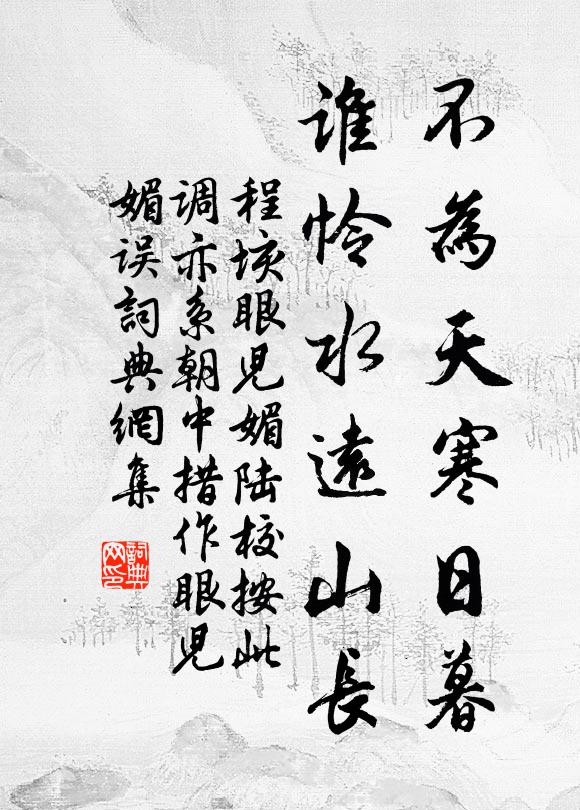 不為天寒日暮
誰怜水遠山長
程垓眼兒媚陆校按此
调亦系朝中措作眼兒
媚误詞典網集
詞典
网印